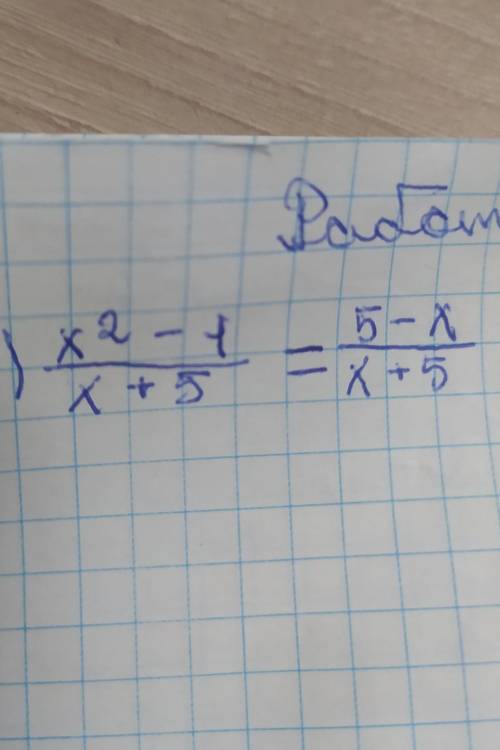 Работ
) x² - 1 / x + 5 = 5 - x / x + 5